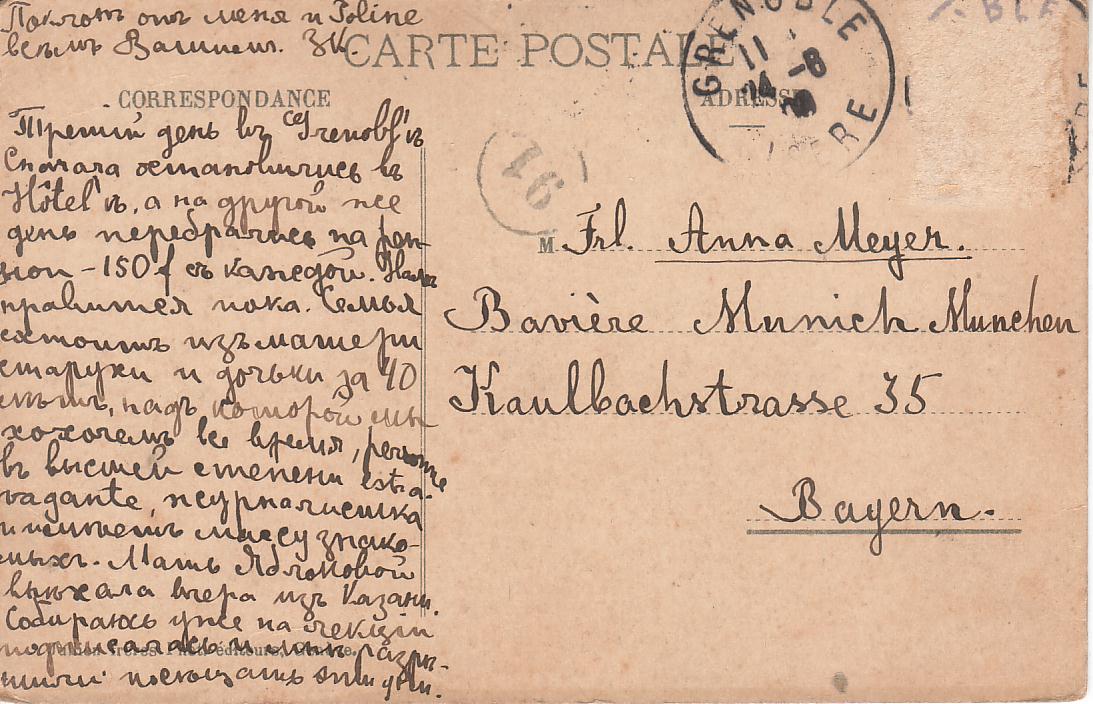 Поклонъ отъ меня и Poline
всѣмъ Вашимъ. ЗК.
CARTE POSTALE
CORRESPONDANCE
ADRESSE
GRENOBLE
11
24 -8
ISERE
91
Третій день въ Grenobl'ѣ
Сначала остановились въ
Hôtel'ѣ, а на другой же
день перебрались на pen-
sion - 150 f съ каждой. Намъ
нравится пока. Семья
состоитъ изъ матери
старухи и дочьки за 40
лѣтъ, надъ которой мы
хохочемъ все время, personne
въ высшей степени extra-
vagante, журналистка
и имѣетъ массу знако-
мыхъ. Мать Яблоновой
выѣхала вчера изъ Казани.
Собираюсь уже на лекціи
подписалась и мнѣ разрѣ-
шили посѣщать эти дни.
M Frl. Anna Meyer.
Bavière Munich Munchen
Kaulbachstrasse 35
Bayern.
frères Phot. éditeurs,